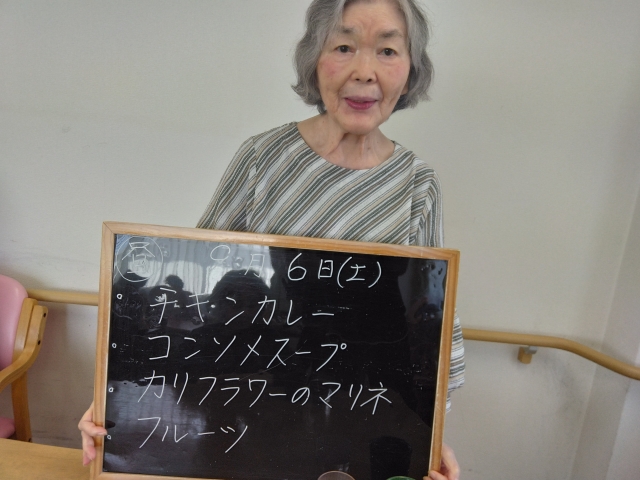 昼 9月 6日(土)
。チキンカレー
。コンソメスープ
。カリフラワーのマリネ
。フルーツ